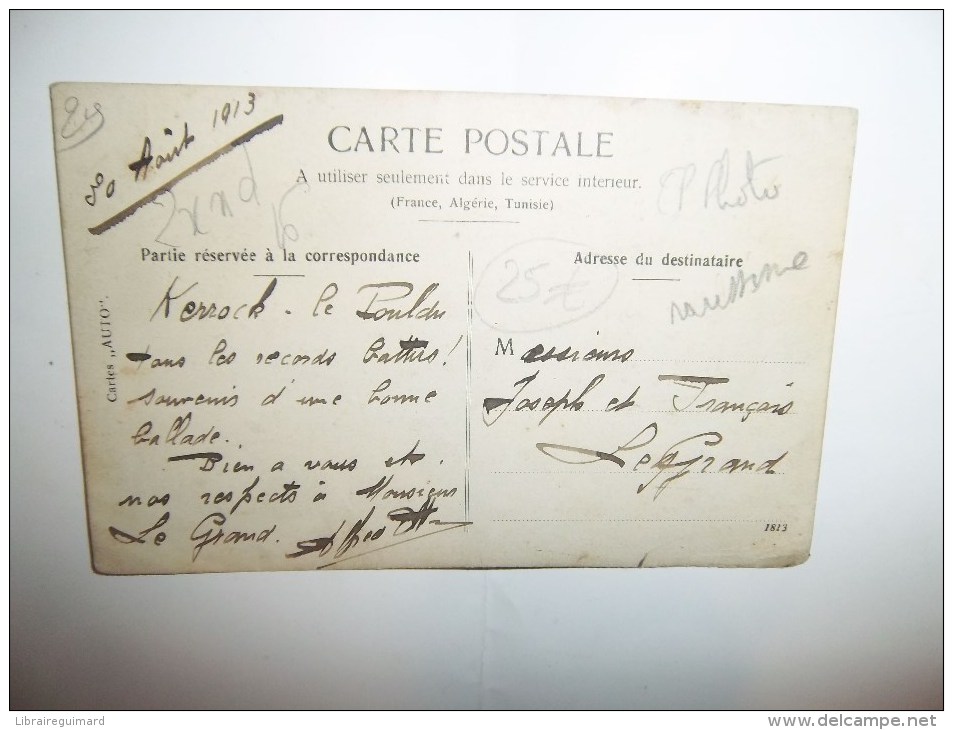 29
30 Août 1913
CARTE POSTALE
A utiliser seulement dans le service interieur.
(France, Algérie, Tunisie)
P Photo
rarissime
25€
Partie réservée à la correspondance
Kerrock - le Pouldu
tous les records battus!
souvenir d'une bonne
ballade.
Bien a vous et
nos respects à Monsieur
Le Grand.
Adresse du destinataire
Messieurs
Joseph et François
Le Grand
1813
Cartes „AUTO".
Libraireguimard
www.delcampe.net